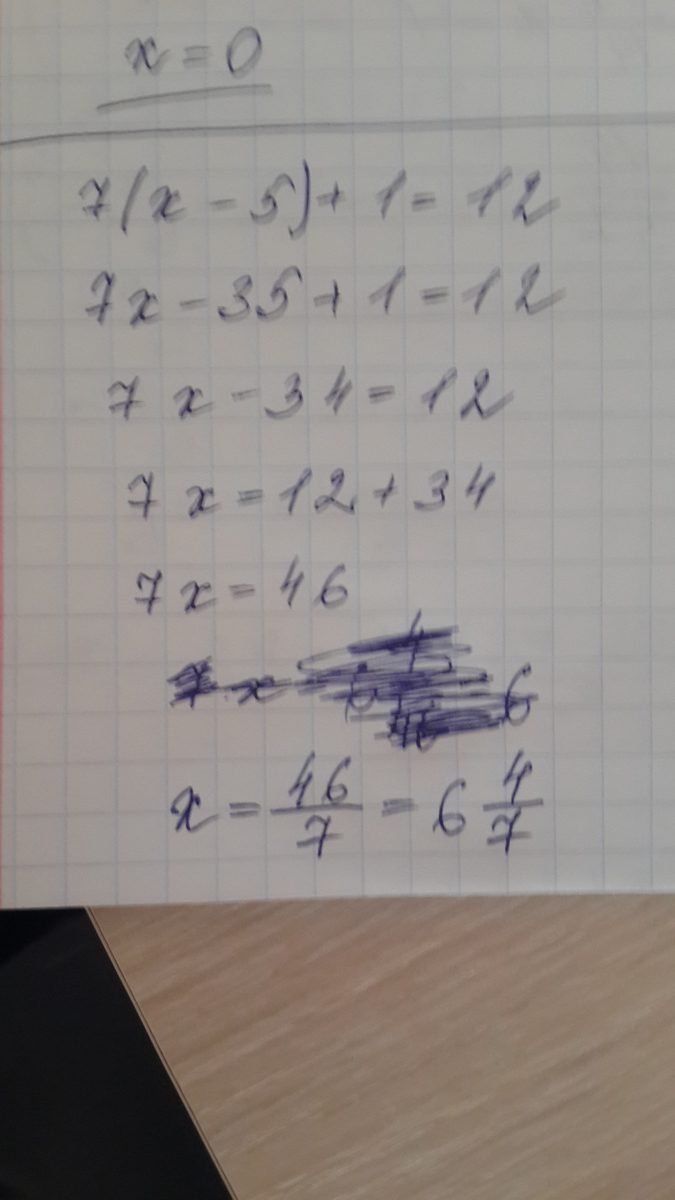 x = 0
7(x - 5) + 1 = 12
7x - 35 + 1 = 12
7x - 34 = 12
7x = 12 + 34
7x = 46
x = 46/7 = 6 4/7